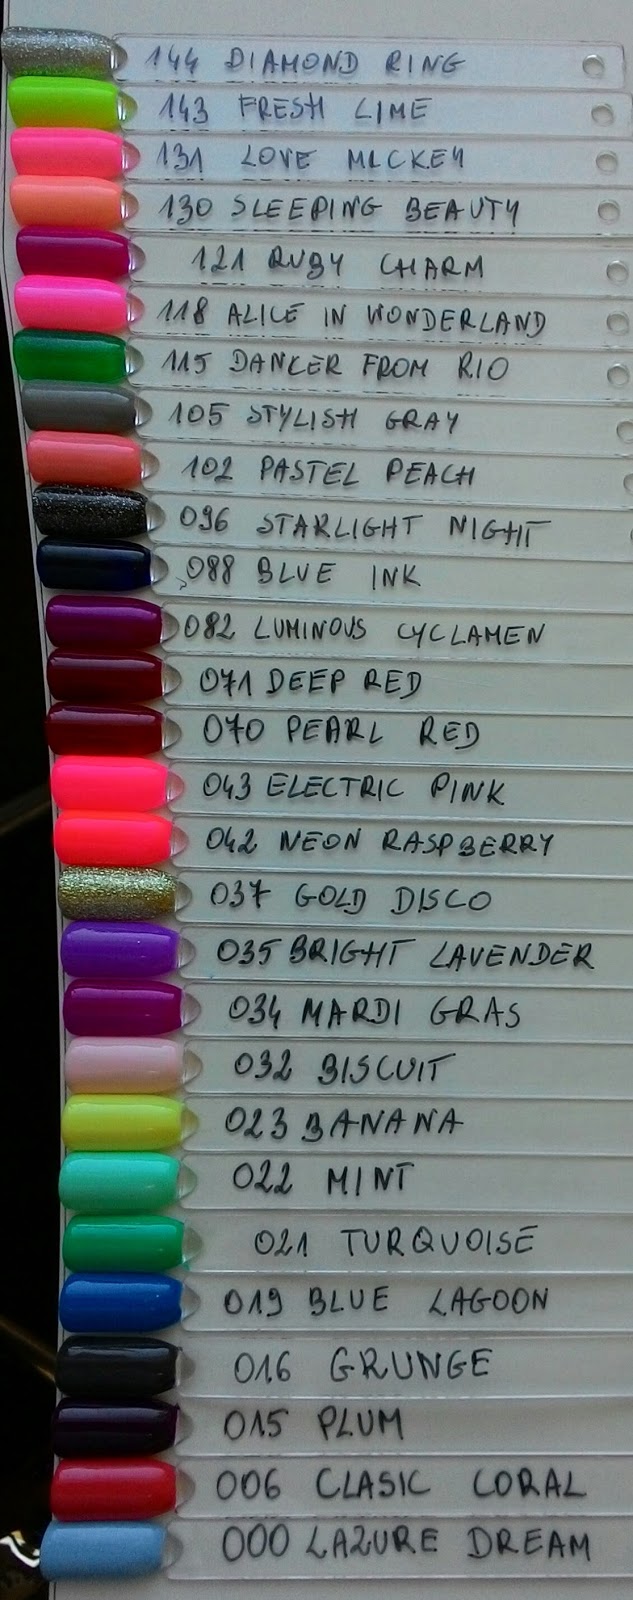 144 DIAMOND RING
143 FRESH LIME
131 LOVE MLCKEY
130 SLEEPING BEAUTY
121 RUBY CHARM
118 ALICE IN WONDERLAND
115 DANCER FROM RIO
105 STYLISH GRAY
102 PASTEL PEACH
096 STARLIGHT NIGHT
088 BLUE INK
082 LUMINOUS CYCLAMEN
071 DEEP RED
070 PEARL RED
043 ELECTRIC PINK
042 NEON RASPBERRY
037 GOLD DISCO
035 BRIGHT LAVENDER
034 MARDI GRAS
032 BISCUIT
023 BANANA
022 MINT
021 TURQUOISE
019 BLUE LAGOON
016 GRUNGE
015 PLUM
006 CLASIC CORAL
000 LAZURE DREAM